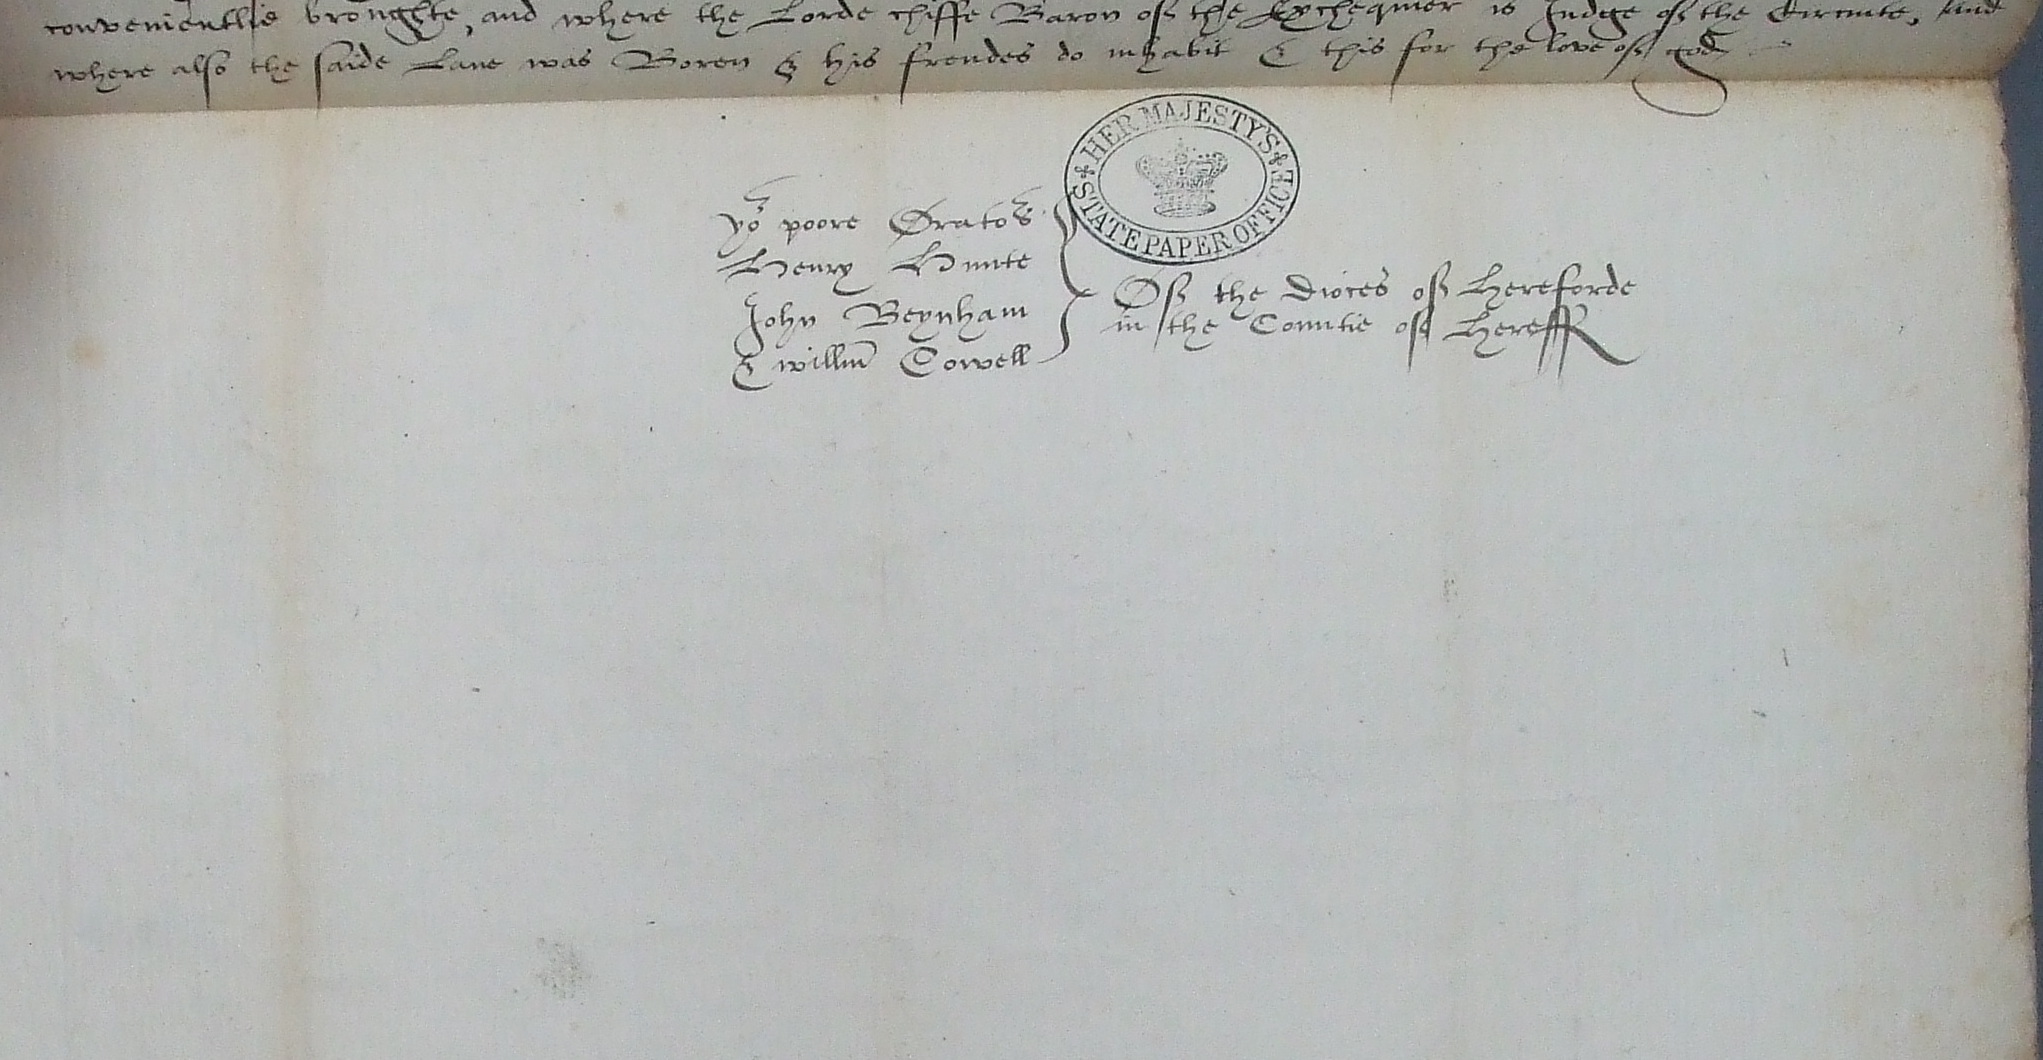 convenientlie broughte, and where the Lorde chiffe Baron of the Exchequier is Judge of the Circuite, And
where also the saide Lane was Boren & his frendes do inhabit & this for the love of god
HER MAJESTY'S
STATE PAPER OFFICE
yor poore Orators
Henry Hunte
John Beynham
& willm Cowell
Of the Dioces of Hereforde
in the Countie of Hereff